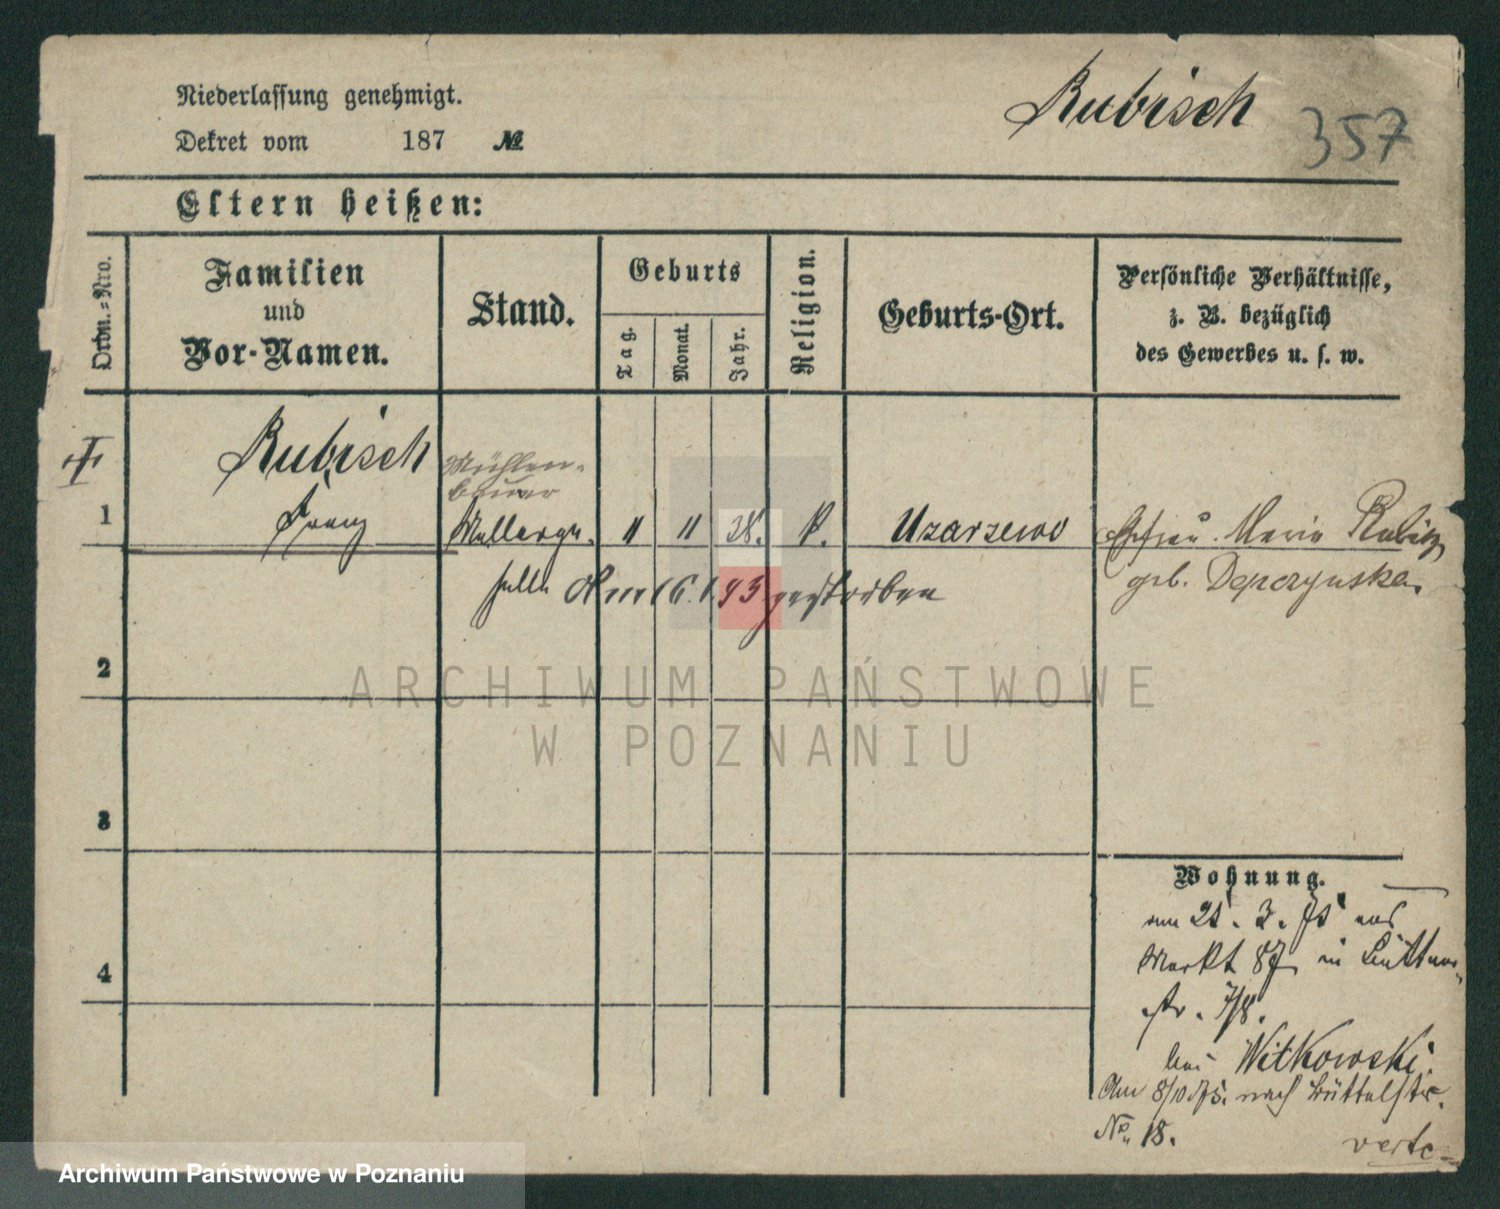 Niederlassung genehmigt.
Dekret vom 187 №
Rubisch
357
Eltern heißen:
Ordn.-Nro.
Familien
und
Vor-Namen.
Stand.
Geburts
Tag.
Monat.
Jahr.
Religion.
Geburts-Ort.
Persönliche Verhältnisse,
z. B. bezüglich
des Gewerbes u. s. w.
Rubisch
Mühlen-
bauer
1 Franz " " 38. k. Uzarzewo
Ehefrau Maria
geb.
Am 16.1.93 gestorben
2
3
4
Wohnung.
aus
Markt 87 in Büttner-
str. 7/8.
bei Witkowski.
Am 8/10 75. nach Büttelstr.
No. 18.
verte
ARCHIWUM PAŃSTWOWE
W POZNANIU
Archiwum Państwowe w Poznaniu